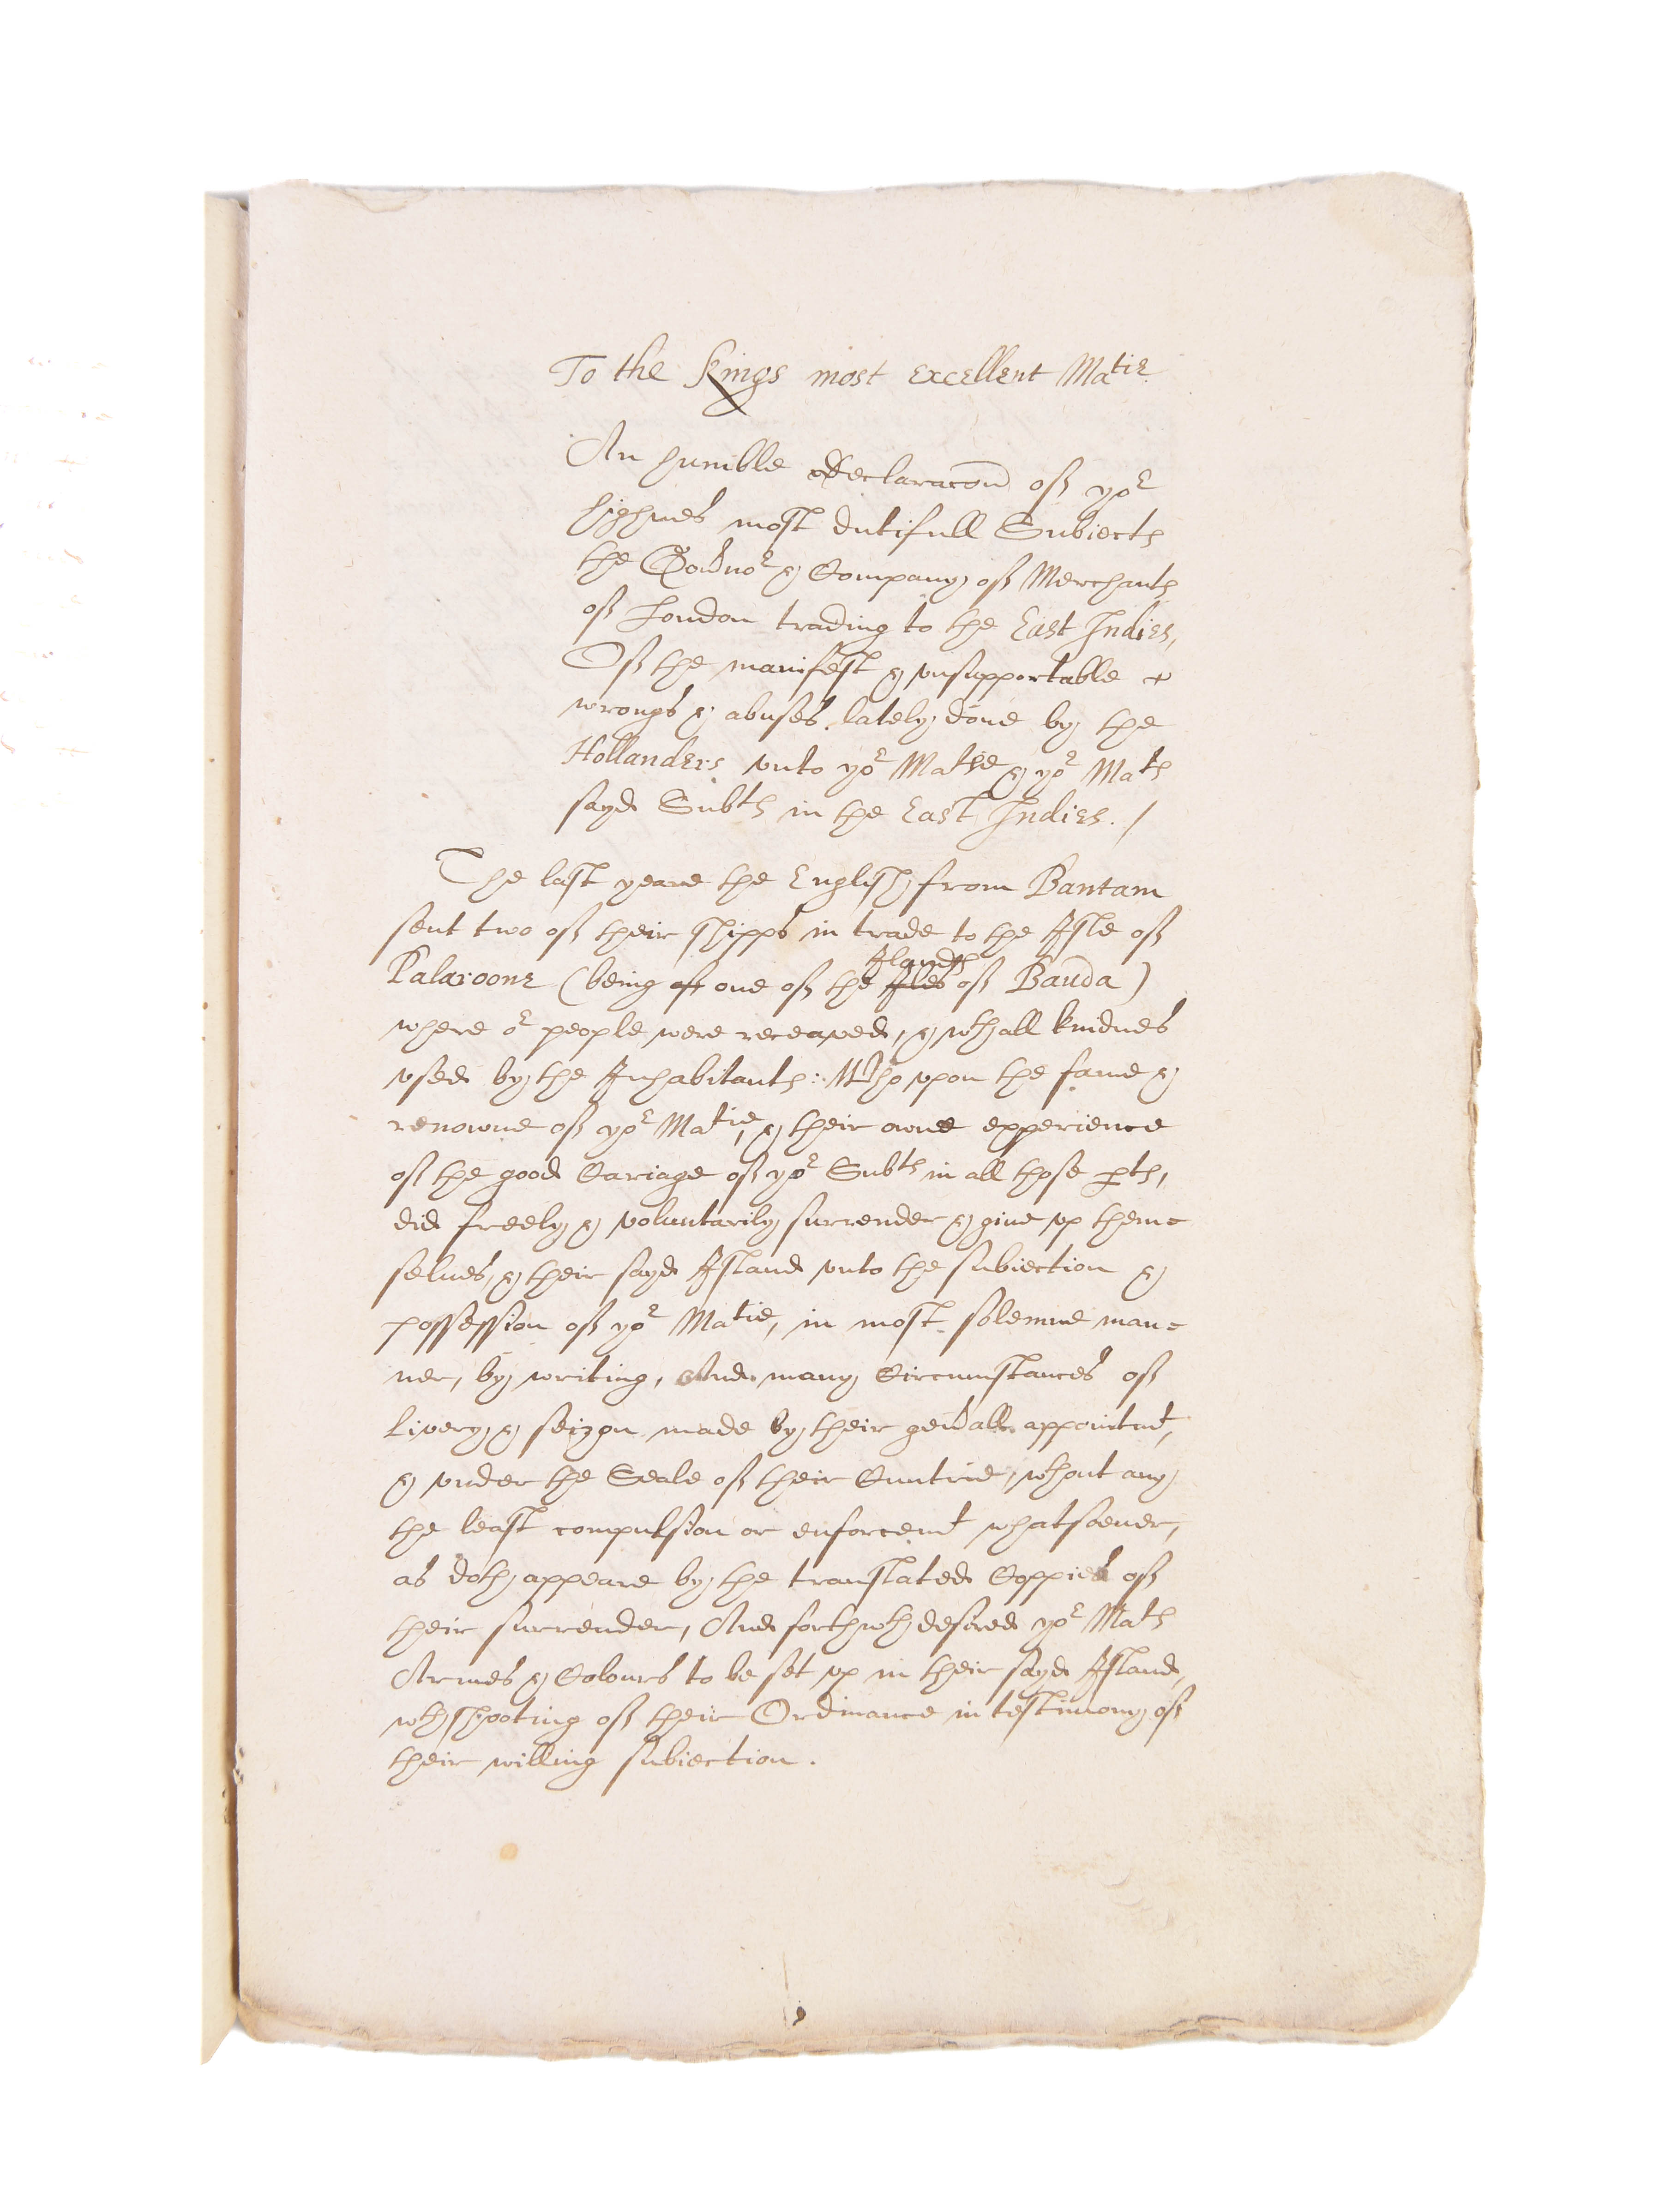 To the Kings most excellent Matie
An humble Declaracon of yor
highnes most dutifull Subiects
the Gouvno r & Company of Merchants
of London trading to the East Indies,
Of the manifest & vnsupportable
wrongs & abuses lately done by the
Hollanders vnto yor Matie & yor Mats
sayd Subts in the East Indies. /
The last yeare the English from Bantam
sent two of their shipps in trade to the Isle of
Palaroone (being of one of the Iles Ilands of Banda)
where or people were receaued, & wth all kindnes
vsed by the Inhabitants: Who vpon the fame &
renowne of yor Matie, & their owne experience
of the good Cariage of yor Subts in all those pts,
did freely & voluntarily surrender & giue vp them=
selues, & their sayd Island vnto the subiection &
possession of yor Matie, in most solemne man=
ner, by writing, And many Circumstances of
livery & seizon made by their genall appointmt,
& vnder the Seale of their Cuntrie, wthout any
the least compulsion or enforcemt whatsoeuer,
as doth appeare by the translated Coppies of
their surrender, And forthwth desired yor Mats
Armes & Colours to be set vp in their sayd Island,
wth shooting of their Ordinance in testimony of
their willing subiection.